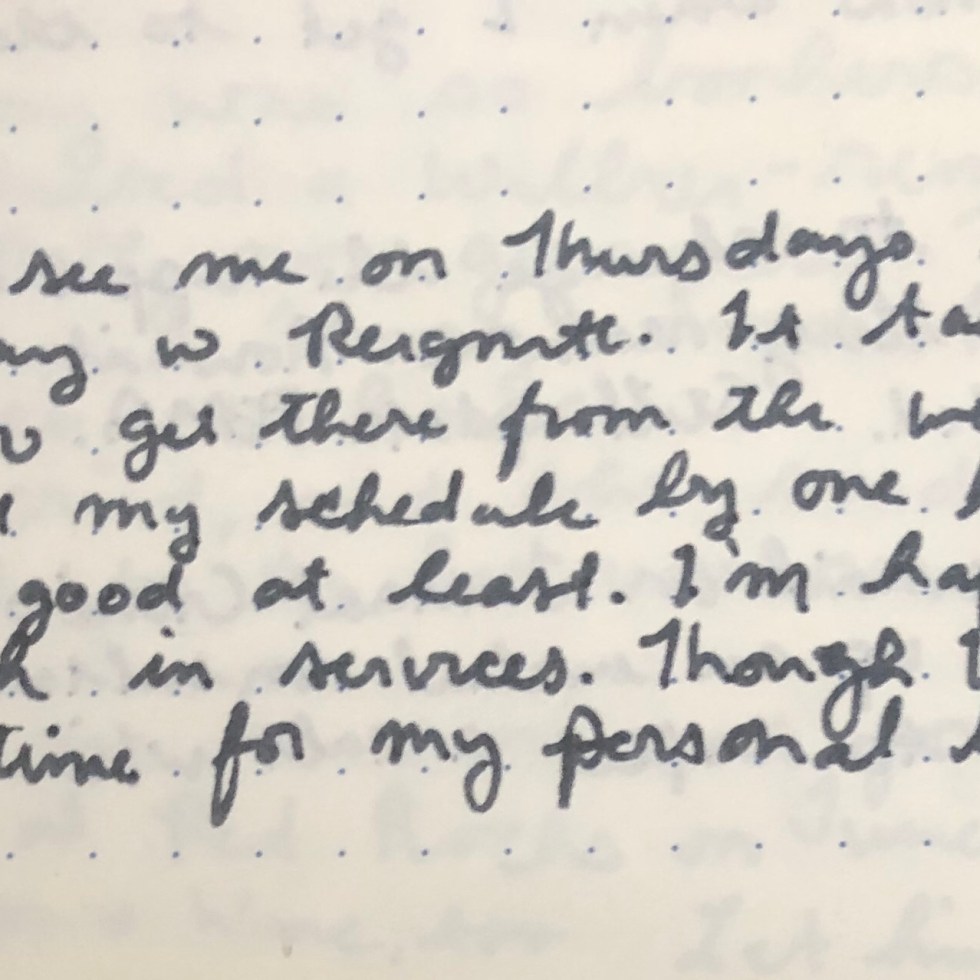 see me on Thursdays.
w Reignite. It
get there from the
my schedule by one
good at least. I'm
in services. Though
time for my personal